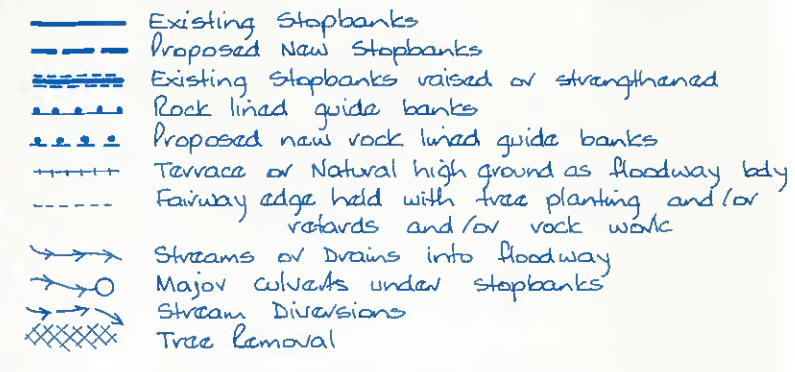 Existing Stopbanks
Proposed New Stopbanks
Existing Stopbanks raised or strengthened
Rock lined guide banks
Proposed new rock lined guide banks
Terrace or Natural high ground as floodway bdy
Fairway edge held with tree planting and/or
retards and/or rock work
Streams or Drains into floodway
Major culverts under stopbanks
Stream Diversions
Tree Removal